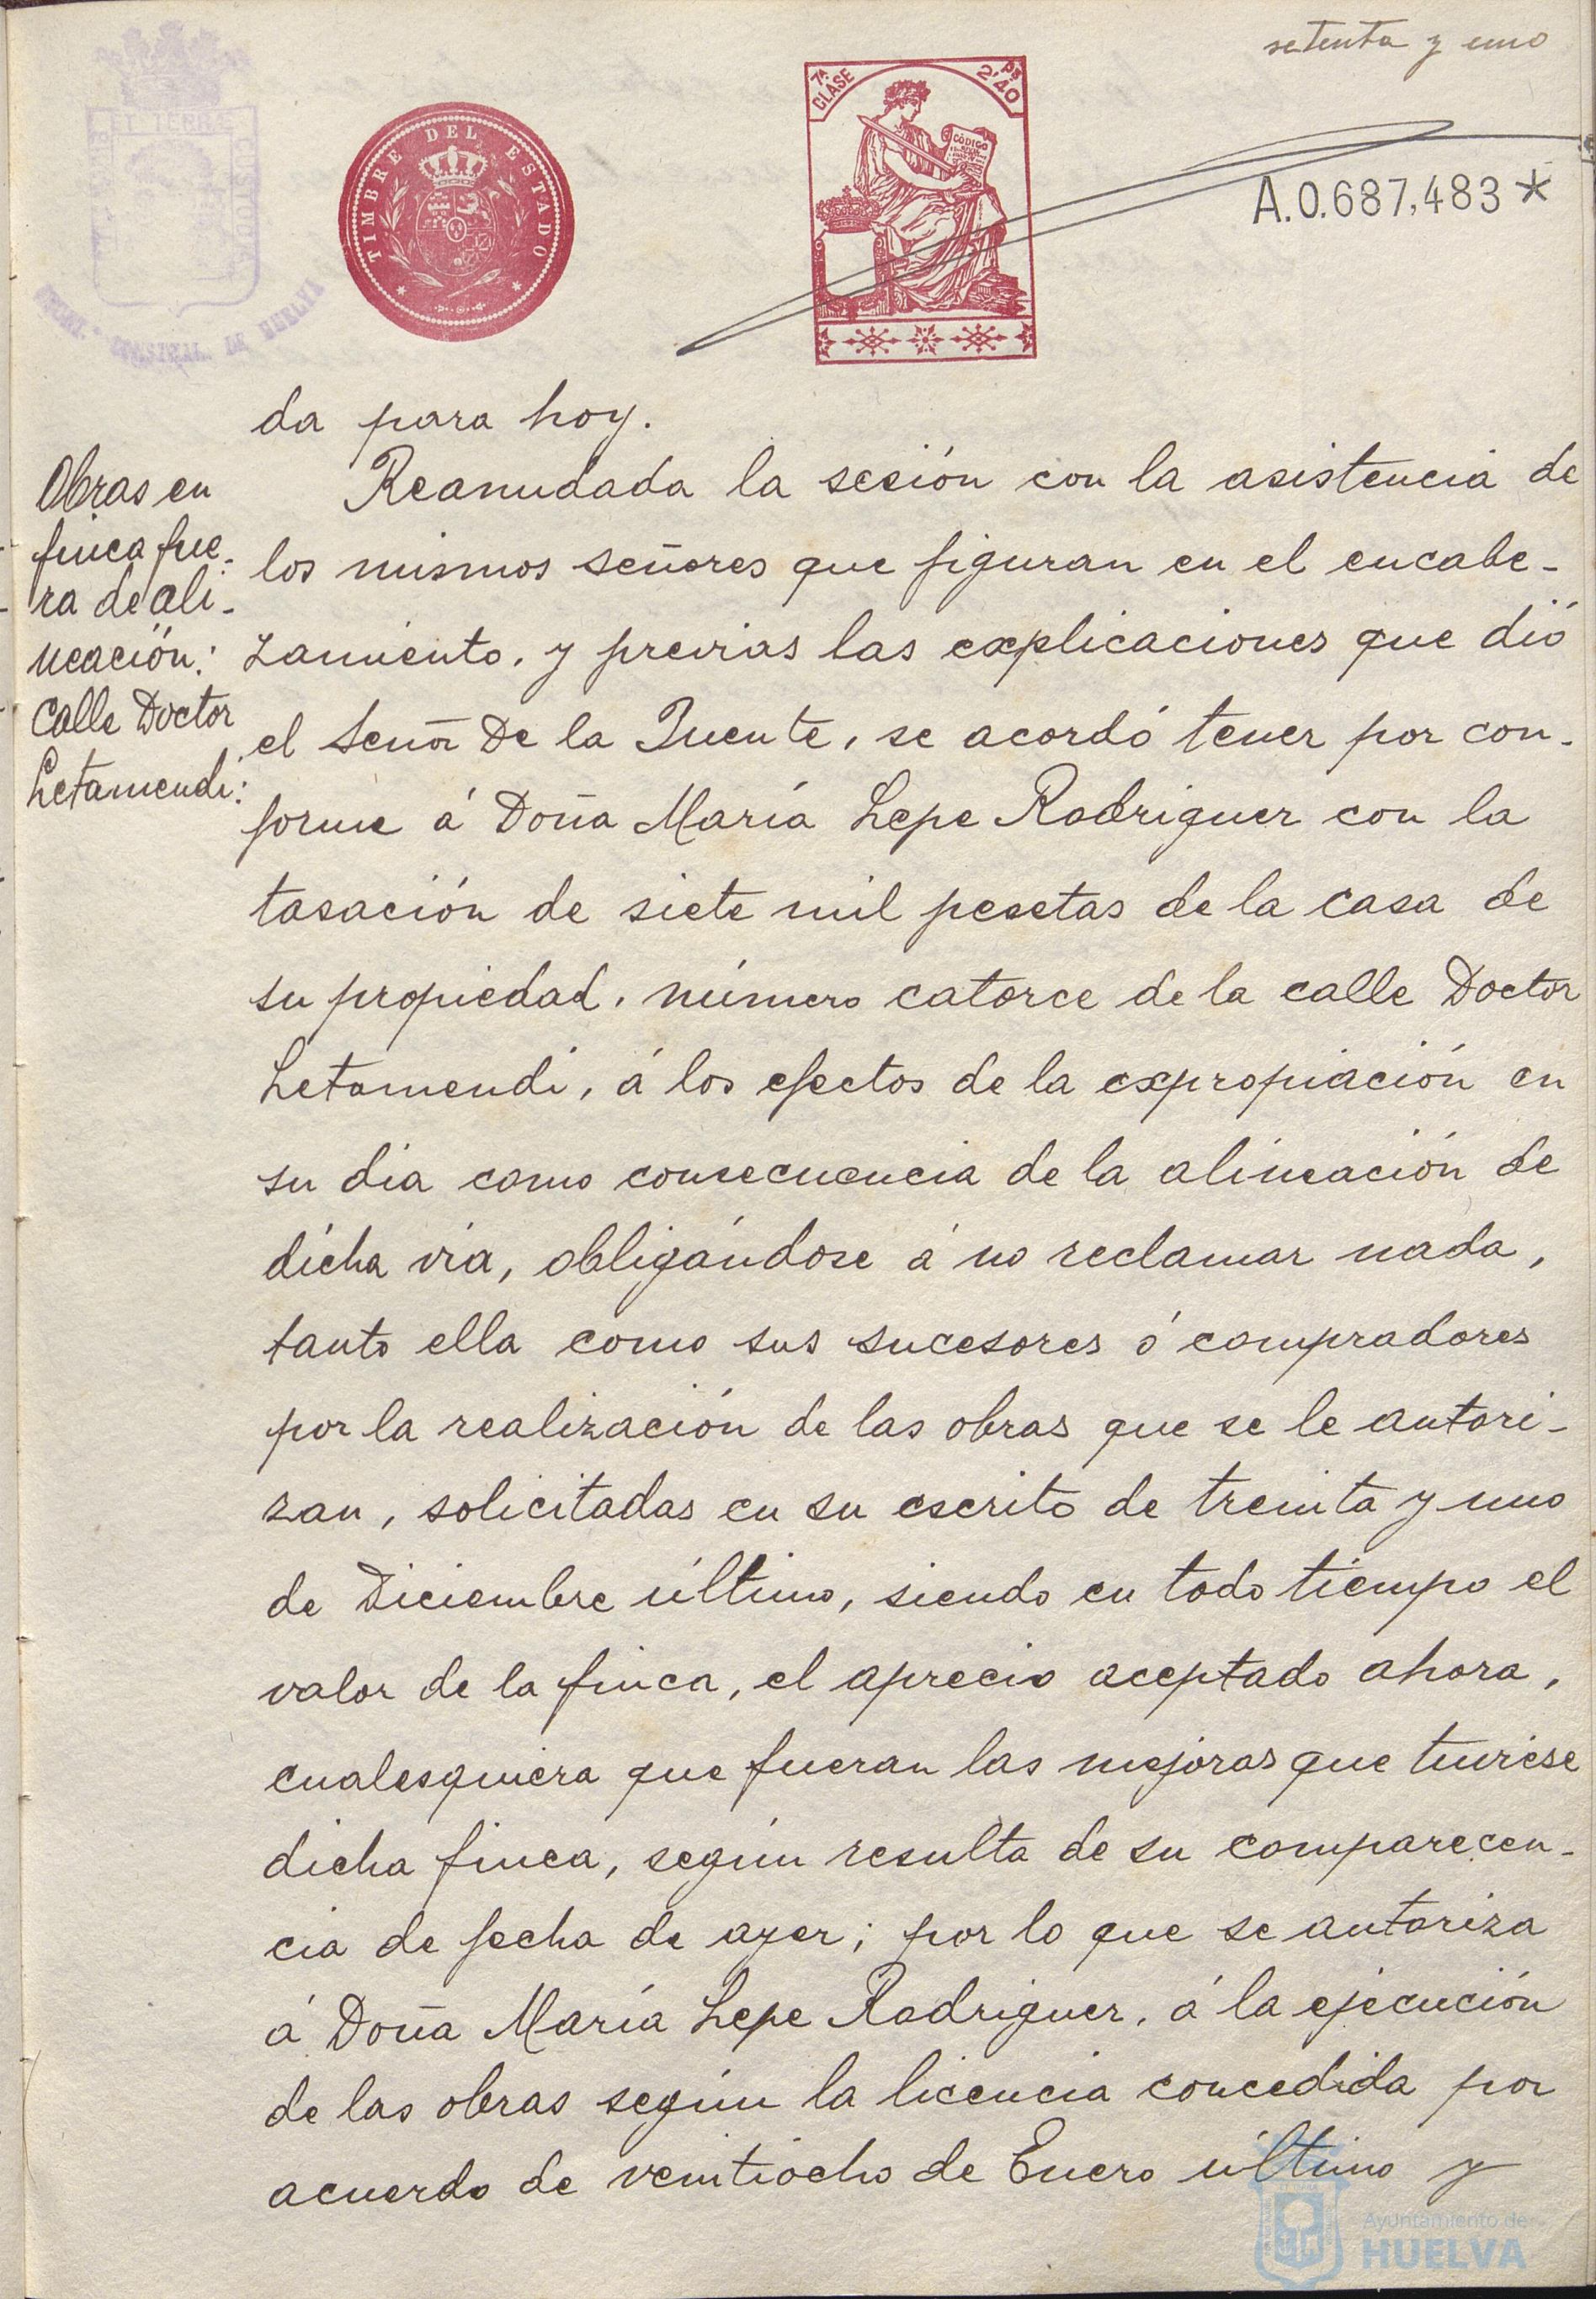 setenta y uno
TIMBRE DEL ESTADO
7ª CLASE
2'40 ps
CÓDIGO
A.0.687,483*
da para hoy.
Obras en
finca fue-
ra de ali-
neación:
Calle Doctor
Letamendi:
Reanudada la sesión con la asistencia de
los mismos señores que figuran en el encabe-
zamiento, y previas las explicaciones que dió
el Señor De la Fuente, se acordó tener por con-
forme á Doña María Lepe Rodriguez con la
tasación de siete mil pesetas de la casa de
su propiedad, número catorce de la calle Doctor
Letamendi, á los efectos de la expropiación en
su dia como consecuencia de la alineación de
dicha via, obligándose á no reclamar nada,
tanto ella como sus sucesores ó compradores
por la realización de las obras que se le autori-
zan, solicitadas en su escrito de treinta y uno
de Diciembre último, siendo en todo tiempo el
valor de la finca, el aprecio aceptado ahora,
cualesquiera que fueran las mejoras que tuviese
dicha finca, según resulta de su comparecen-
cia de fecha de ayer; por lo que se autoriza
á Doña María Lepe Rodriguez, á la ejecución
de las obras según la licencia concedida por
acuerdo de veintiocho de Enero último y
Ayuntamiento de
HUELVA